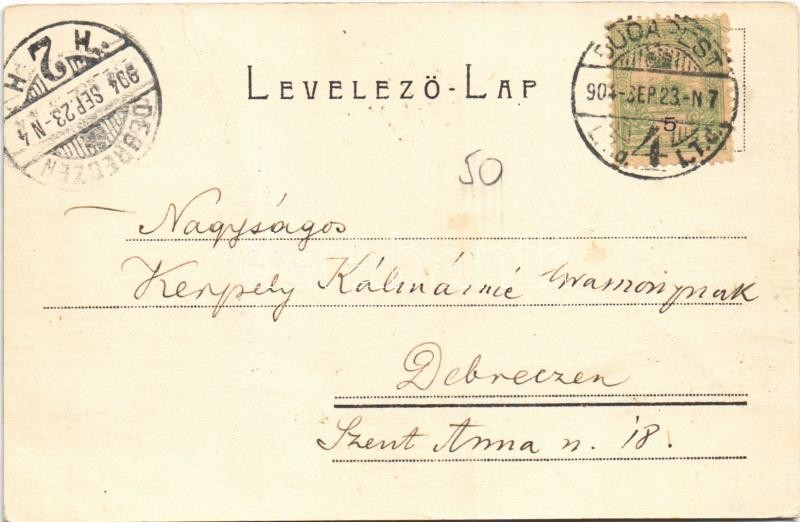 H. 2 H.
904 SEP. 23.-N 4
DEBRECZEN
LEVELEZŐ-LAP
BUDAPEST
904-SEP.23.-N 7
5
4
I.T.O.
50
Nagyságos
Kerpely Kálmánné Urasszonynak
Debreczen
Szent Anna u. 18.